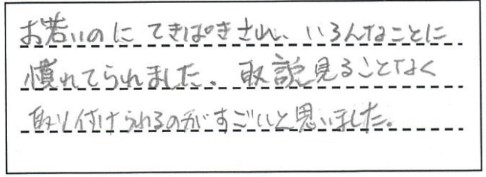 お若いのに てきぱきされ、いろんなことに
慣れてられました。取説見ることなく
取り付けられるのがすごいと思いました。